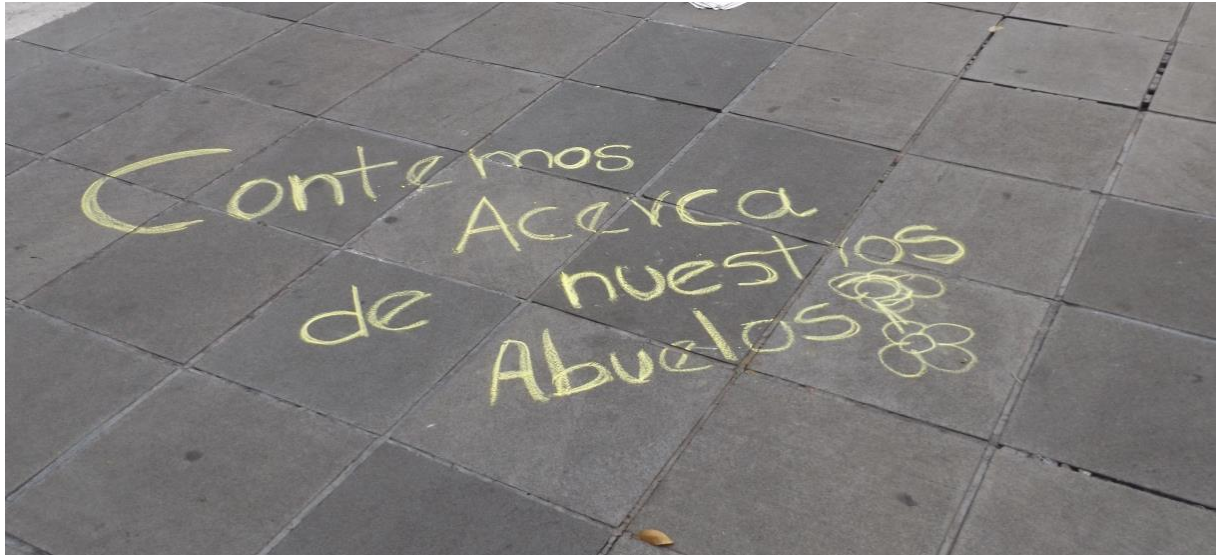 Contemos
Acerca
de nuestros
Abuelos